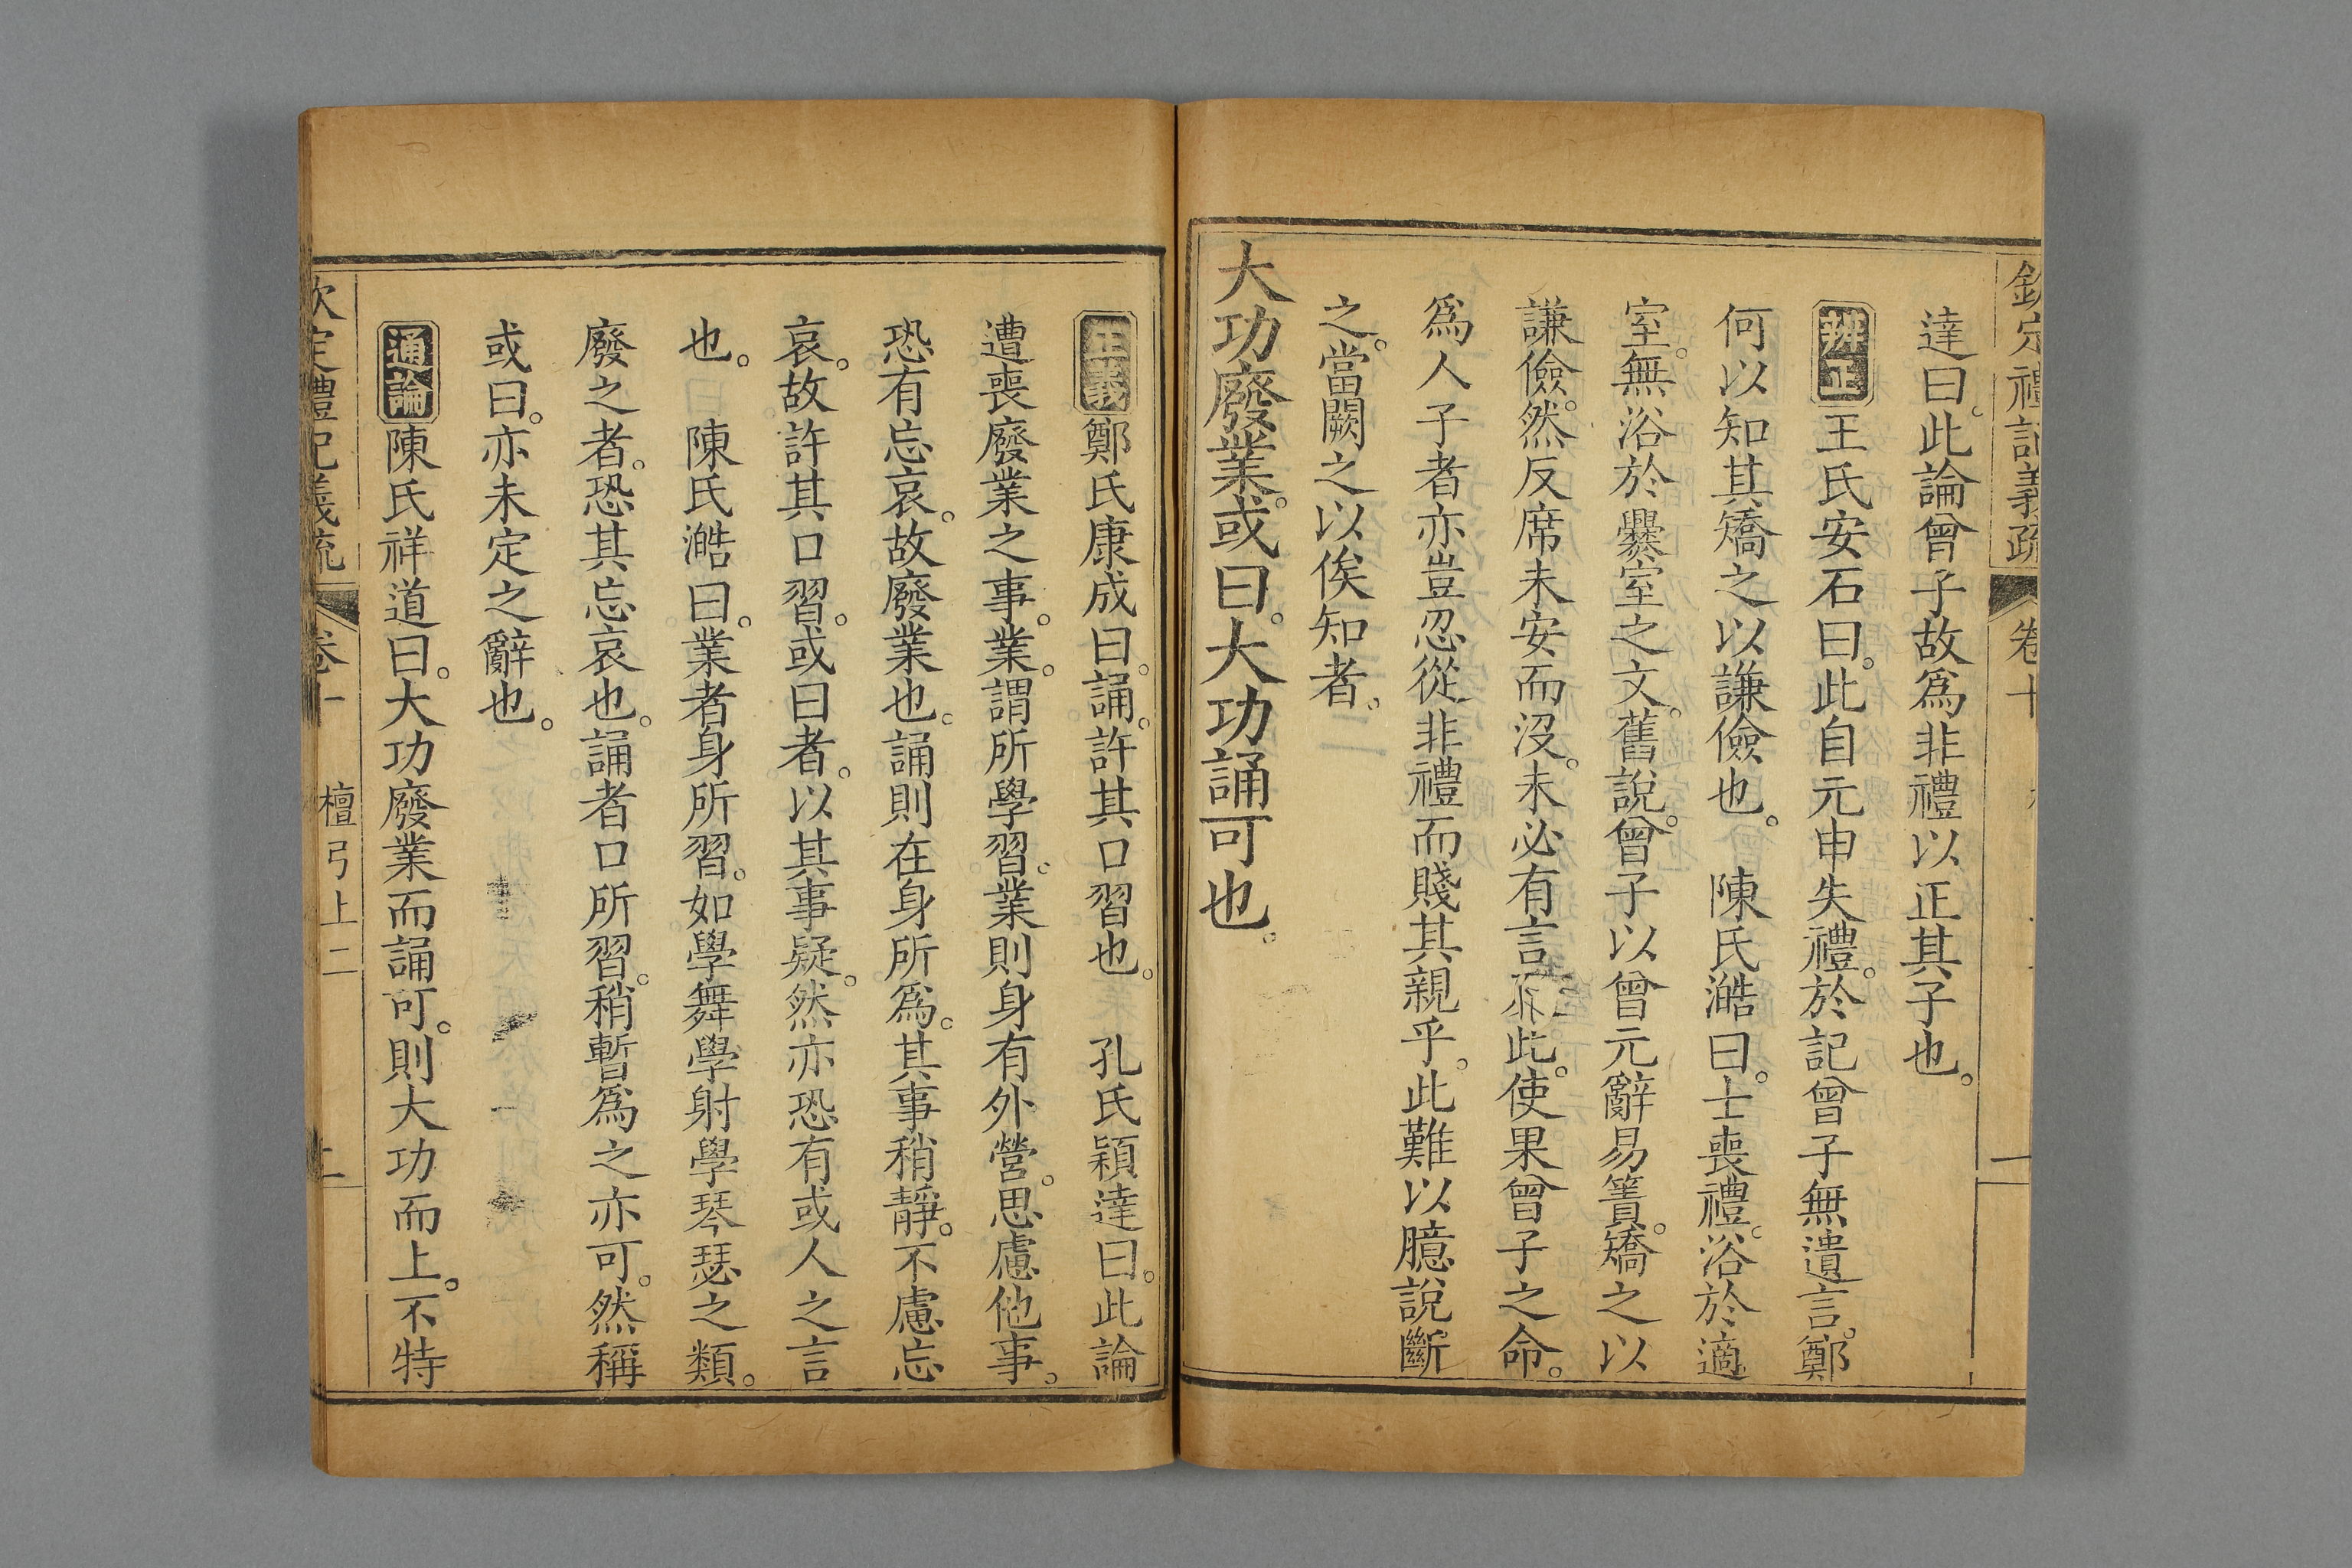 欽定禮記義疏 卷十
達曰。此論曾子故爲非禮以正其子也。
辨正 王氏安石曰。此自元申失禮。於記曾子無遺言。鄭
何以知其矯之以謙儉也。 陳氏澔曰。士喪禮。浴於適
室。無浴於爨室之文。舊說。曾子以曾元辭易簀。矯之以
謙儉。然反席未安而沒。未必有言及此。使果曾子之命。
爲人子者亦豈忍從非禮而賤其親乎。此難以臆說斷
之。當闕之以俟知者。
大功廢業。或曰。大功誦可也。
正義 鄭氏康成曰。誦。許其口習也。 孔氏穎達曰。此論
遭喪廢業之事。業。謂所學習。業則身有外營。思慮他事。
恐有忘哀。故廢業也。誦則在身所爲。其事稍靜。不慮忘
哀。故許其口習。或曰者。以其事疑。然亦恐有或人之言
也。 陳氏澔曰。業者身所習。如學舞學射學琴瑟之類。
廢之者。恐其忘哀也。誦者口所習。稍暫爲之亦可。然稱
或曰。亦未定之辭也。
通論 陳氏祥道曰。大功廢業而誦可。則大功而上。不特
欽定禮記義疏 卷十 檀弓上二